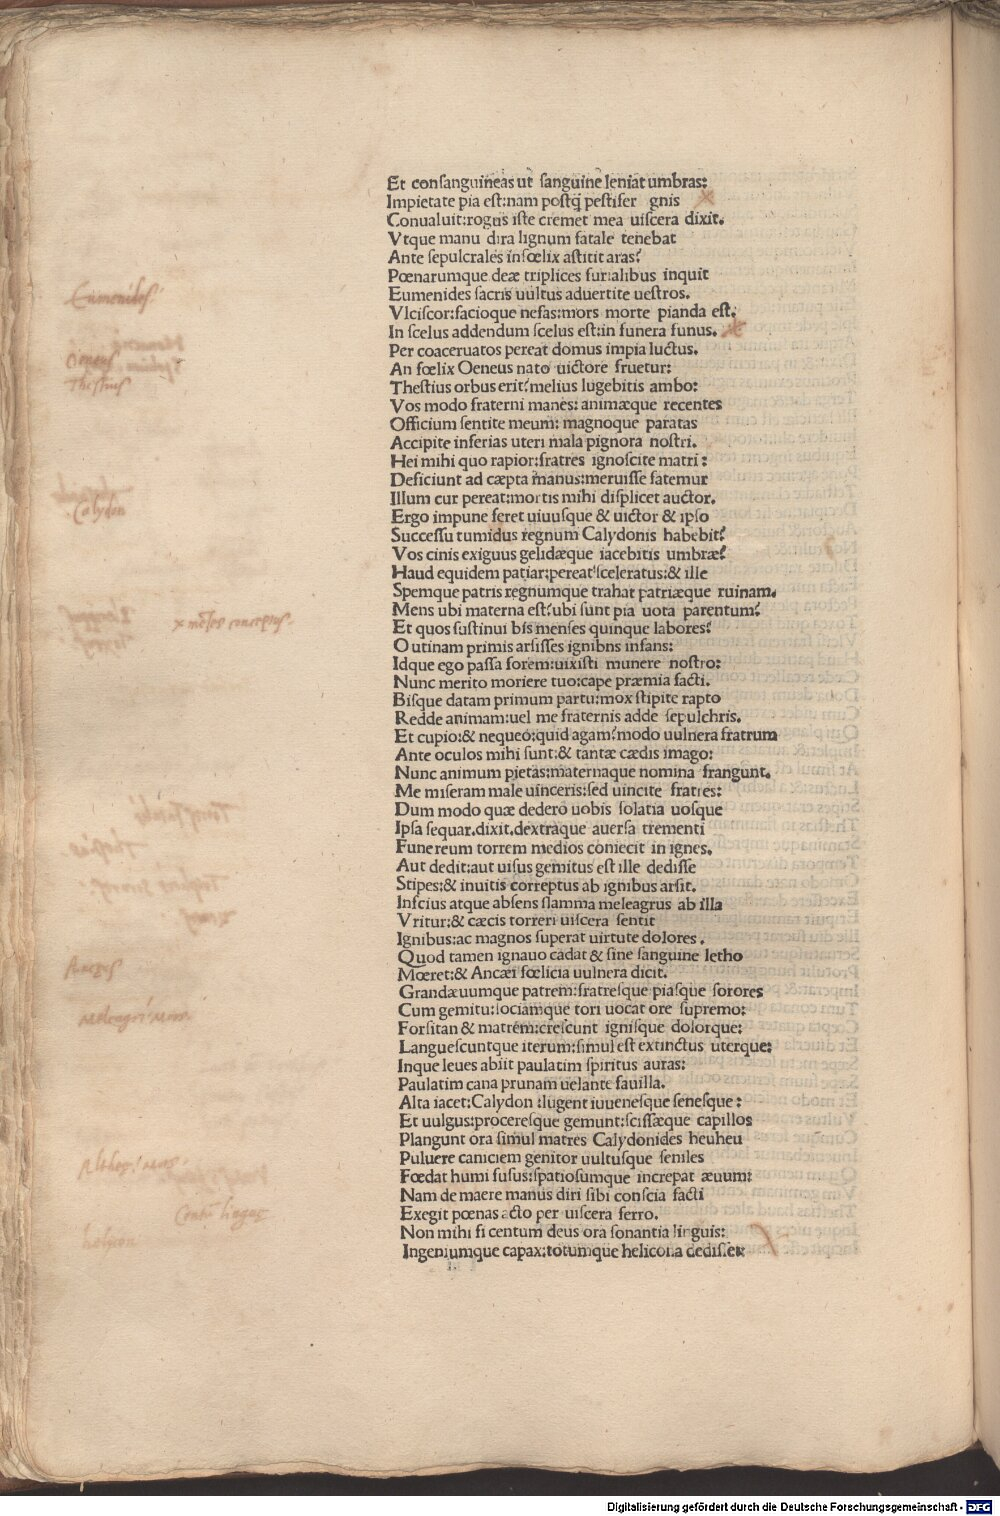 Et consanguineas ut sanguine leniat umbras:
Impietate pia est:nam postq̃ pestifer gnis
Conualuit:rogus iste cremet mea uiscera dixit.
Vtque manu dira lignum fatale tenebat
Ante sepulcrales infœlix astitit aras:
Pœnarumque deæ triplices furialibus inquit
Eumenides sacris uultus aduertite uestros.
Vlciscor:facioque nefas:mors morte pianda est.
In scelus addendum scelus est:in funera funus.
Per coaceruatos pereat domus impia luctus.
An fœlix Oeneus nato uictore fruetur:
Thestius orbus erit?melius lugebitis ambo:
Vos modo fraterni manes: animæque recentes
Officium sentite meum: magnoque paratas
Accipite inferias uteri mala pignora nostri.
Hei mihi quo rapior:fratres ignoscite matri:
Deficiunt ad cæpta manus:meruisse fatemur
Illum cur pereat:mortis mihi displicet auctor.
Ergo impune feret uiuusque & uictor & ipso
Successu tumidus regnum Calydonis habebit?
Vos cinis exiguus gelidæque iacebitis umbræ?
Haud equidem patiar:pereat sceleratus:& ille
Spemque patris regnumque trahat patriæque ruinam.
Mens ubi materna est?ubi sunt pia uota parentum?
Et quos sustinui bis menses quinque labores?
O utinam primis arsisses ignibns infans:
Idque ego passa forem:uixisti munere nostro:
Nunc merito moriere tuo:cape præmia facti.
Bisque datam primum partu:mox stipite rapto
Redde animam:uel me fraternis adde sepulchris.
Et cupio:& nequeo:quid agam?modo uulnera fratrum
Ante oculos mihi sunt:& tantæ cædis imago:
Nunc animum pietas:maternaque nomina frangunt.
Me miseram male uinceris:sed uincite fratres:
Dum modo quæ dedero uobis solatia uosque
Ipsa sequar.dixit.dextraque auersa trementi
Funereum torrem medios coniecit in ignes.
Aut dedit:aut uisus gemitus est ille dedisse
Stipes:& inuitis correptus ab ignibus arsit.
Inscius atque absens flamma meleagrus ab illa
Vritur:& cæcis torreri uiscera sentit
Ignibus:ac magnos superat uirtute dolores.
Quod tamen ignauo cadat & sine sanguine letho
Mœret:& Ancæi fœlicia uulnera dicit.
Grandæuumque patrem:fratresque piasque sorores
Cum gemitu:sociamque tori uocat ore supremo:
Forsitan & matrem:crescunt ignisque dolorque:
Languescuntque iterum:simul est extinctus uterque:
Inque leues abiit paulatim spiritus auras:
Paulatim cana prunam uelante fauilla.
Alta iacet:Calydon:lugent iuuenesque senesque:
Et uulgus:proceresque gemunt:scissæque capillos
Plangunt ora simul matres Calydonides heuheu
Puluere caniciem genitor uultusque seniles
Fœdat humi fusus:spatiosumque increpat æuum:
Nam de maere manus diri sibi conscia facti
Exegit pœnas acto per uiscera ferro.
Non mihi si centum deus ora sonantia linguis:
Ingeniumque capax:totumque helicona dedisset
Eumenides.
Oeneus
Thestius
Calydon
Meleagri mors.
helicon
Digitalisierung gefördert durch die Deutsche Forschungsgemeinschaft - DFG